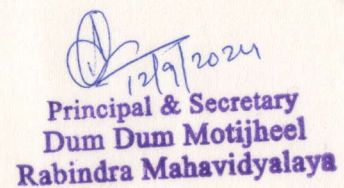 12/9/2024
Principal & Secretary
Dum Dum Motijheel
Rabindra Mahavidyalaya